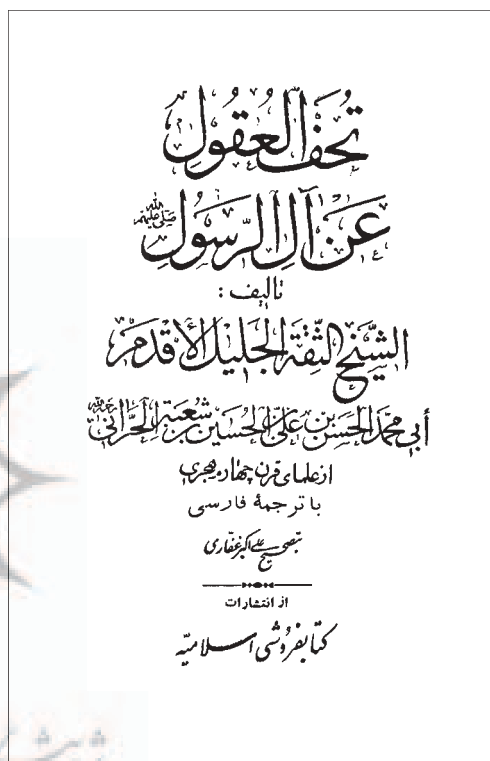 تُحَفُ العُقُولِ
عَنْ آلِ الرَّسُولِ صَلَّى اللهُ عَلَيْهِمْ
تالیف :
الشَّيْخِ الثِّقَةِ الجَليلِ الأَقْدَمِ
أَبي مُحَمَّدِ الحَسَنِ بْنِ عَلِيِّ بْنِ الحُسَيْنِ بْنِ شُعْبَةِ الحَرَّانِيِّ رحمه الله
از علمای قرن چهارم هجری
با ترجمهٔ فارسی
بتصحیح علی اکبر غفاری
از انتشارات
کتابفروشی اسلامیّه